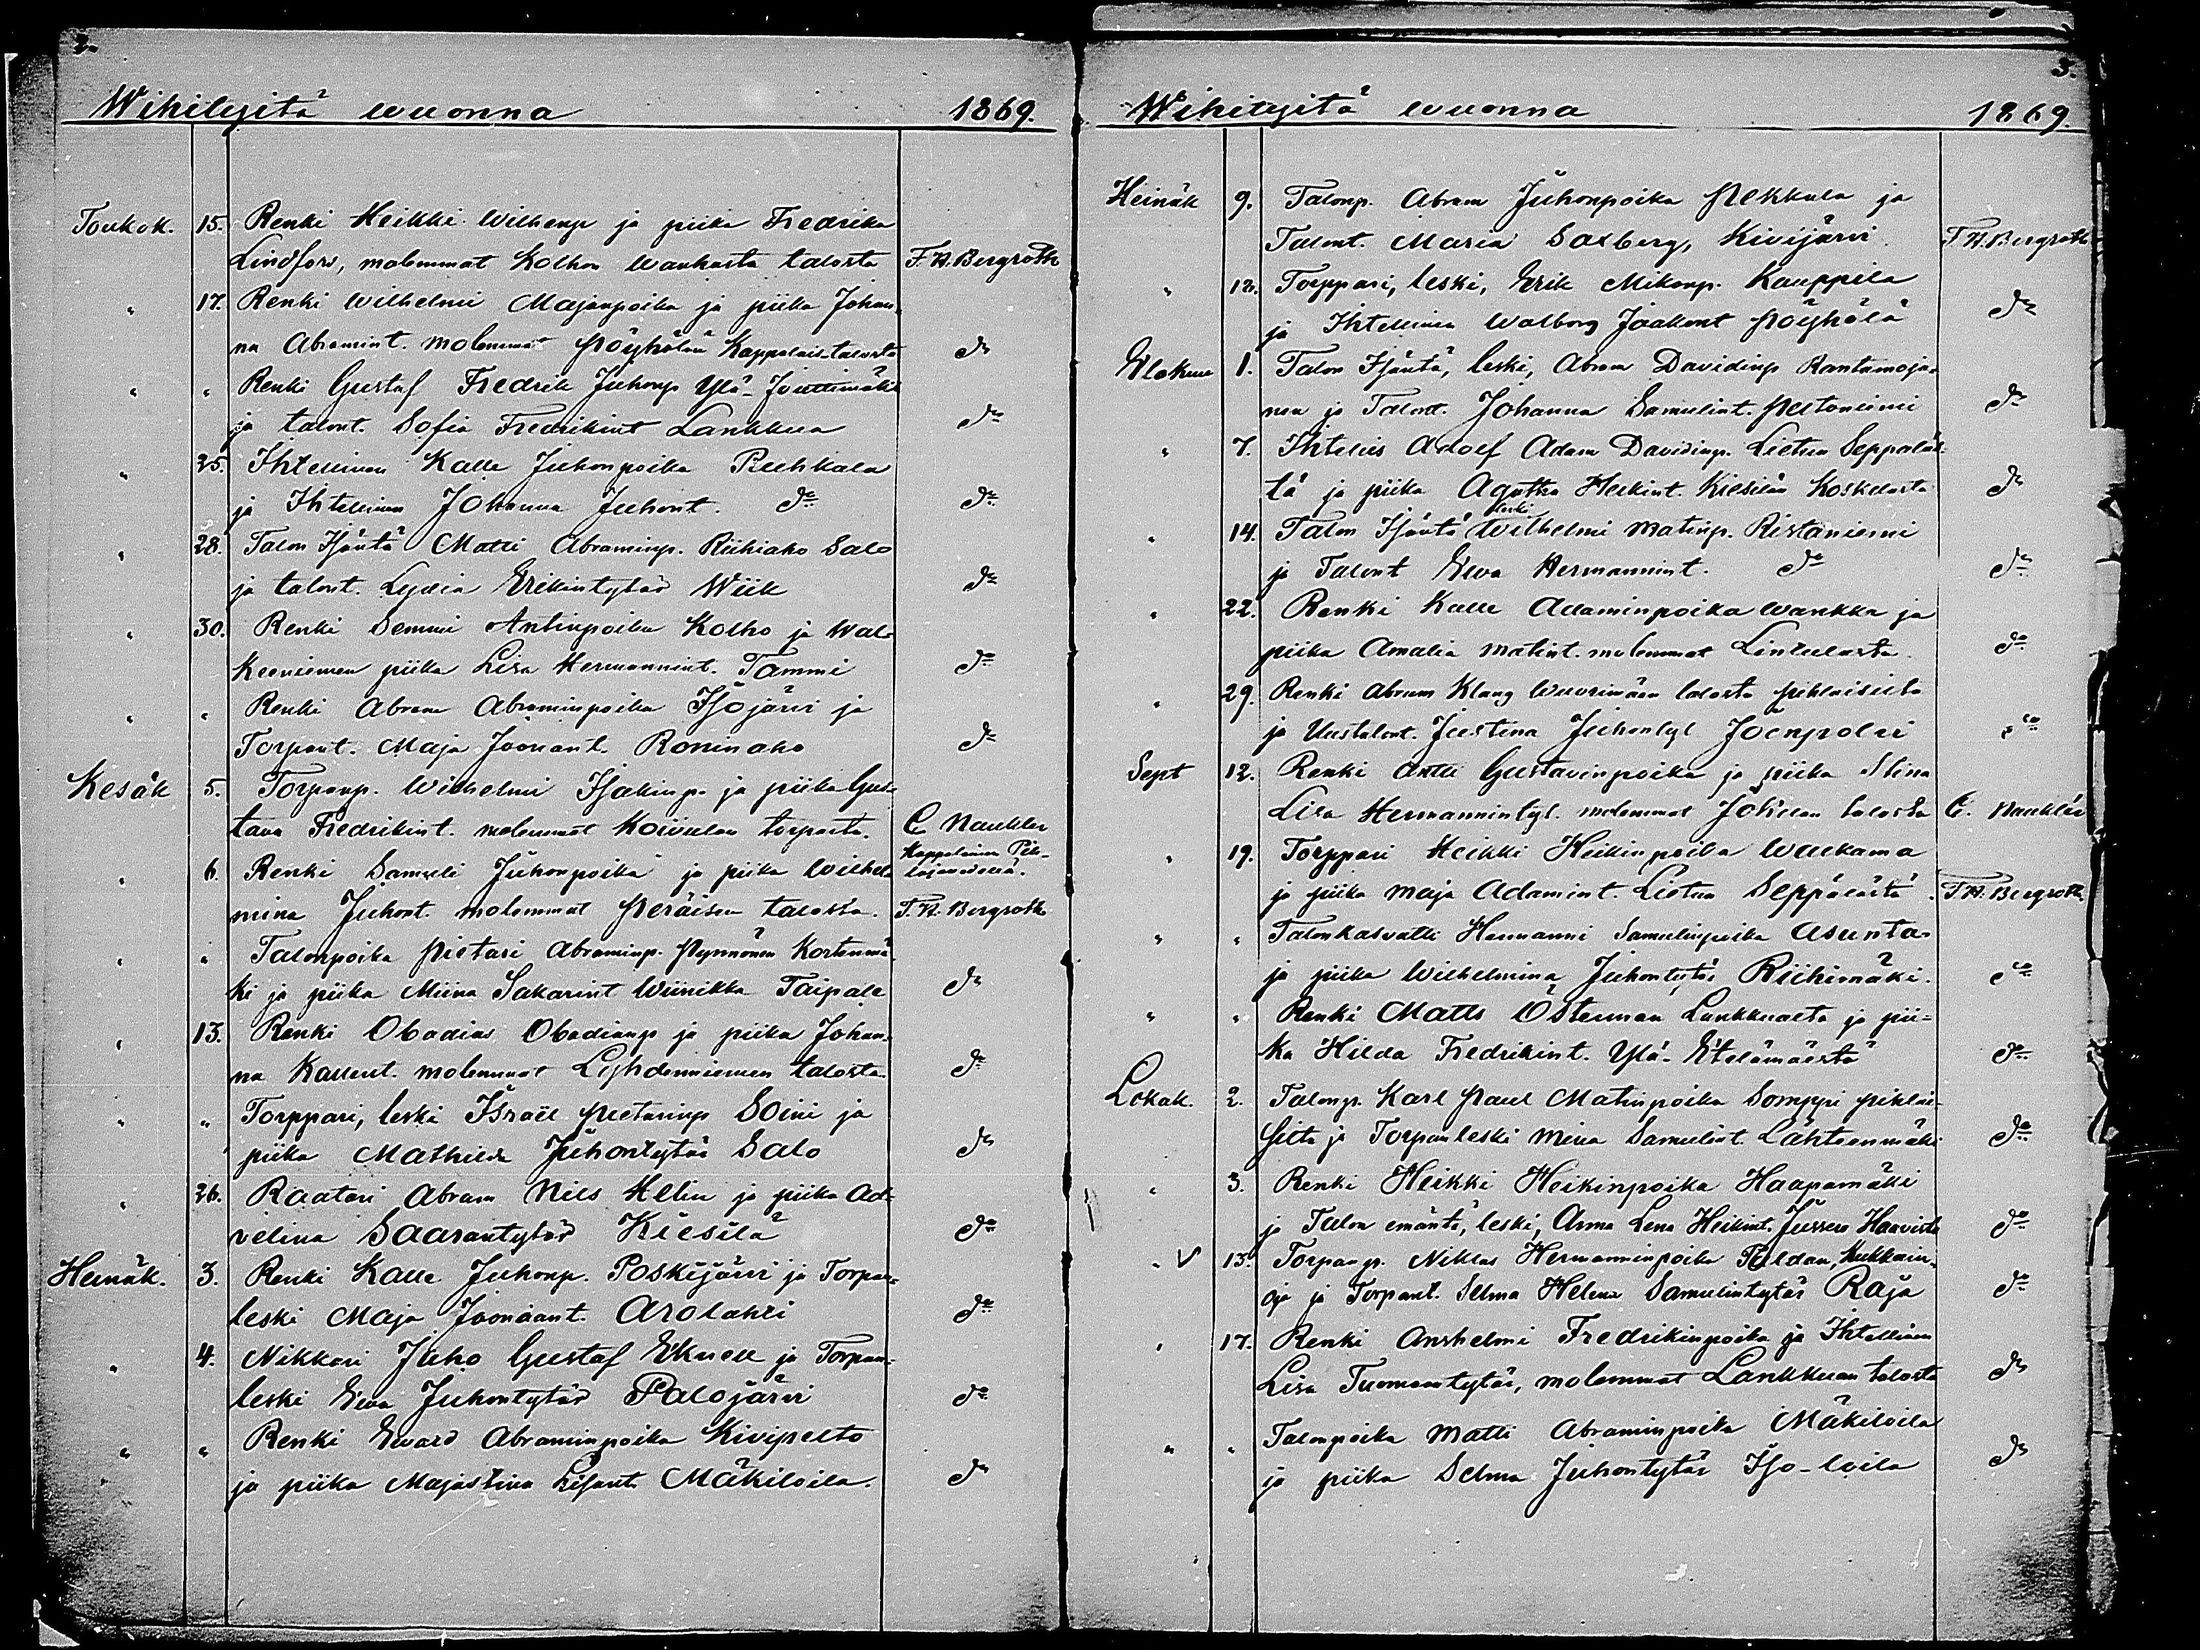 2.
Wihilyitä wuonna 1869.
Toukok. 15. Renki Heikki Wilhemp ja piika Fredrika
Lindfors, molemmat Kolhon Wanhasta talosta F. H. Bergroth
" 17. Renki Wilhelmi Majanpoika ja piika Johan-
na Abramint. molemmat Pöyhölän Kappelais-talosta do
" " Renki Gustaf Fredrik Juhonp Ylä-Jouttimäki
ja talont. Sofia Fredrikint Lankkua do
" 25. Ihtellinen Kalle Juhonpoika Ruhkala
ja Ihtellinen Johanna Juhont. do do
" 28. Talon Isäntä Matti Abraminp. Riihiaho Salo
ja talont. Lydia Erikintytär Wiik do
" 30. Renki Semmi Antinpoika Kolho ja Wal-
keeniemen piika Lisa Hermannint. Tammi do
" " Renki Abram Abraminpoika Isojärvi ja
Torpant. Maja Joonant. Roninaho do
Kesäk 5. Torpanp. Wilhelmi Isakinp. ja piika Gus-
tava Fredrikint. molemmat Koivulan torpasta. C Naukler
Kappalainen Pih-
lajavedellä.
" 6. Renki Samueli Juhonpoika ja piika Wilhel-
mina Juhont. molemmat Peräisen talosta. F. H. Bergroth
" " Talonpoika Pietari Abraminp. Pynnönen Kortenmä-
ki ja piika Miina Sakarint Wiinikka Taipale do
" 13. Renki Obadias Obadianp ja piika Johan-
na Kallent. molemmat Lyhdenniemen talosta do
" " Torppari, leski Israel Pietarinp Soini ja
piika Mathilda Juhontytär Salo do
" 26. Raatari Abram Nils Helin ja piika Ad-
velina Saarantytär Kiesilä do
Heinäk. 3. Renki Kalle Juhonp. Poskijärvi ja Torpan-
leski Maja Joonaant. Arolahti do
" 4. Nikkari Juho Gustaf Eknell ja Torpan-
leski Ewa Juhontytär Palojärvi do
" " Renki Eward Abraminpoika Kivipelto
ja piika Majastina Lisant. Mäkiloila. do
3.
Wihityitä wuonna 1869.
Heinäk 9. Talonp. Abram Juhonpoika Pekkala ja
Talont. Maria Saxberg, Kivijärvi. F H. Bergroth
" 12. Torppari, leski, Erik Mikonp. Kauppila
ja Ihtellinen Walborg Jaakont Pöyhölä do
Elokuu 1. Talon Isäntä, leski, Abram Davidinp Rantamoja-
nen ja Talont. Johanna Samulint. Peltoniemi do
" 7. Ihtellis Adolf Adam Davidinp. Lietsun Seppäläs-
tä ja piika Agatha Heikint. Kiesilän Koskelasta do
" 14. Talon Isäntä leski Wilhelmi Matinp. Ristaniemi
ja Talont Ewa Hermannint. do do
" 22. Renki Kalle Adaminpoika Wankka ja
piika Amalia Matint. molemmat Lintulasta do
" 29. Renki Abram Klang Wuorimäen talosta Pihlaisista
ja Uustalont. Justina Juhontyt Joenpolvi do
Sept 12. Renki Antti Gustavinpoika ja piika Stina
Lisa Hermannintyt. molemmat Jokelan talosta C. Nauklér
" 19. Torppari Heikki Heikinpoika Waekama
ja piika Maja Adamint. Lietsu Seppälästä. F. H. Bergroth
" " Talonkasvatti Hermanni Samulinpoika Asunta
ja piika Wilhelmina Juhontytär Riihimäki. do
" " Renki Matts Österman Lankkualta ja pii-
ka Hilda Fredrikint. Ylä-Etelämäestä do
Lokak. 2. Talonp. Karl Paul Matinpoika Somppi Pihlai-
sista ja Torpanleski Miina Samulint. Lähteenmäki do
" 3. Renki Heikki Heikinpoika Haapamäki
ja Talon emäntä, leski, Anna Lena Heikint. Jussero Haavisto do
" V 13. Torpanp. Niklas Hermanninpoika Toldan, Kukkain-
oja ja Torpant. Selma Helena Samulintytär Raja do
" 17. Renki Anshelmi Fredrikinpoika ja Ihtellinen
Lisa Tuomaantytär, molemmat Lankkuan talosta do
" " Talonpoika Matti Abraminpoika Mäkiloila
ja piika Selma Juhontytär Iso-loila do